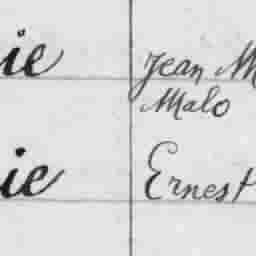 ie Jean M
Malo
ie Ernest